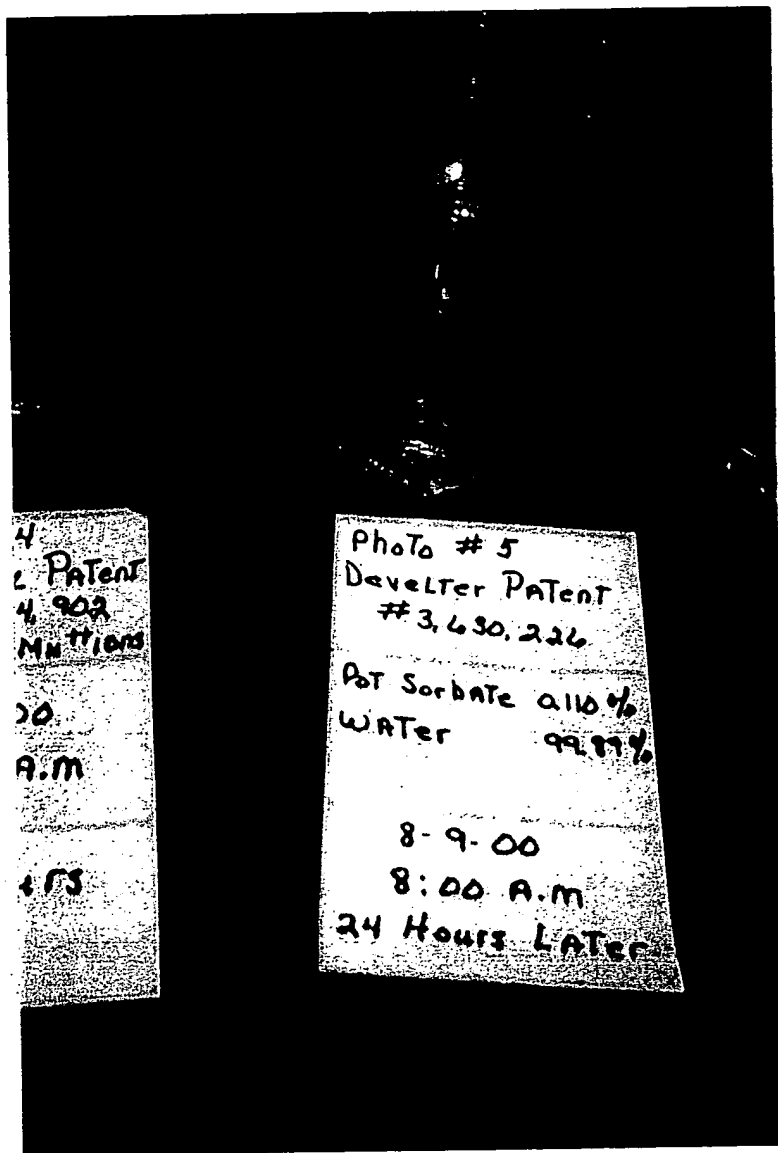 4
PATent
4,902
00
A.m
rs
PhoTo # 5
DeveLTer PATenT
# 3,630,226
PoT SorbATe 0.110 %
WATer 99.89%
8-9-00
8:00 A.m
24 Hours LATer